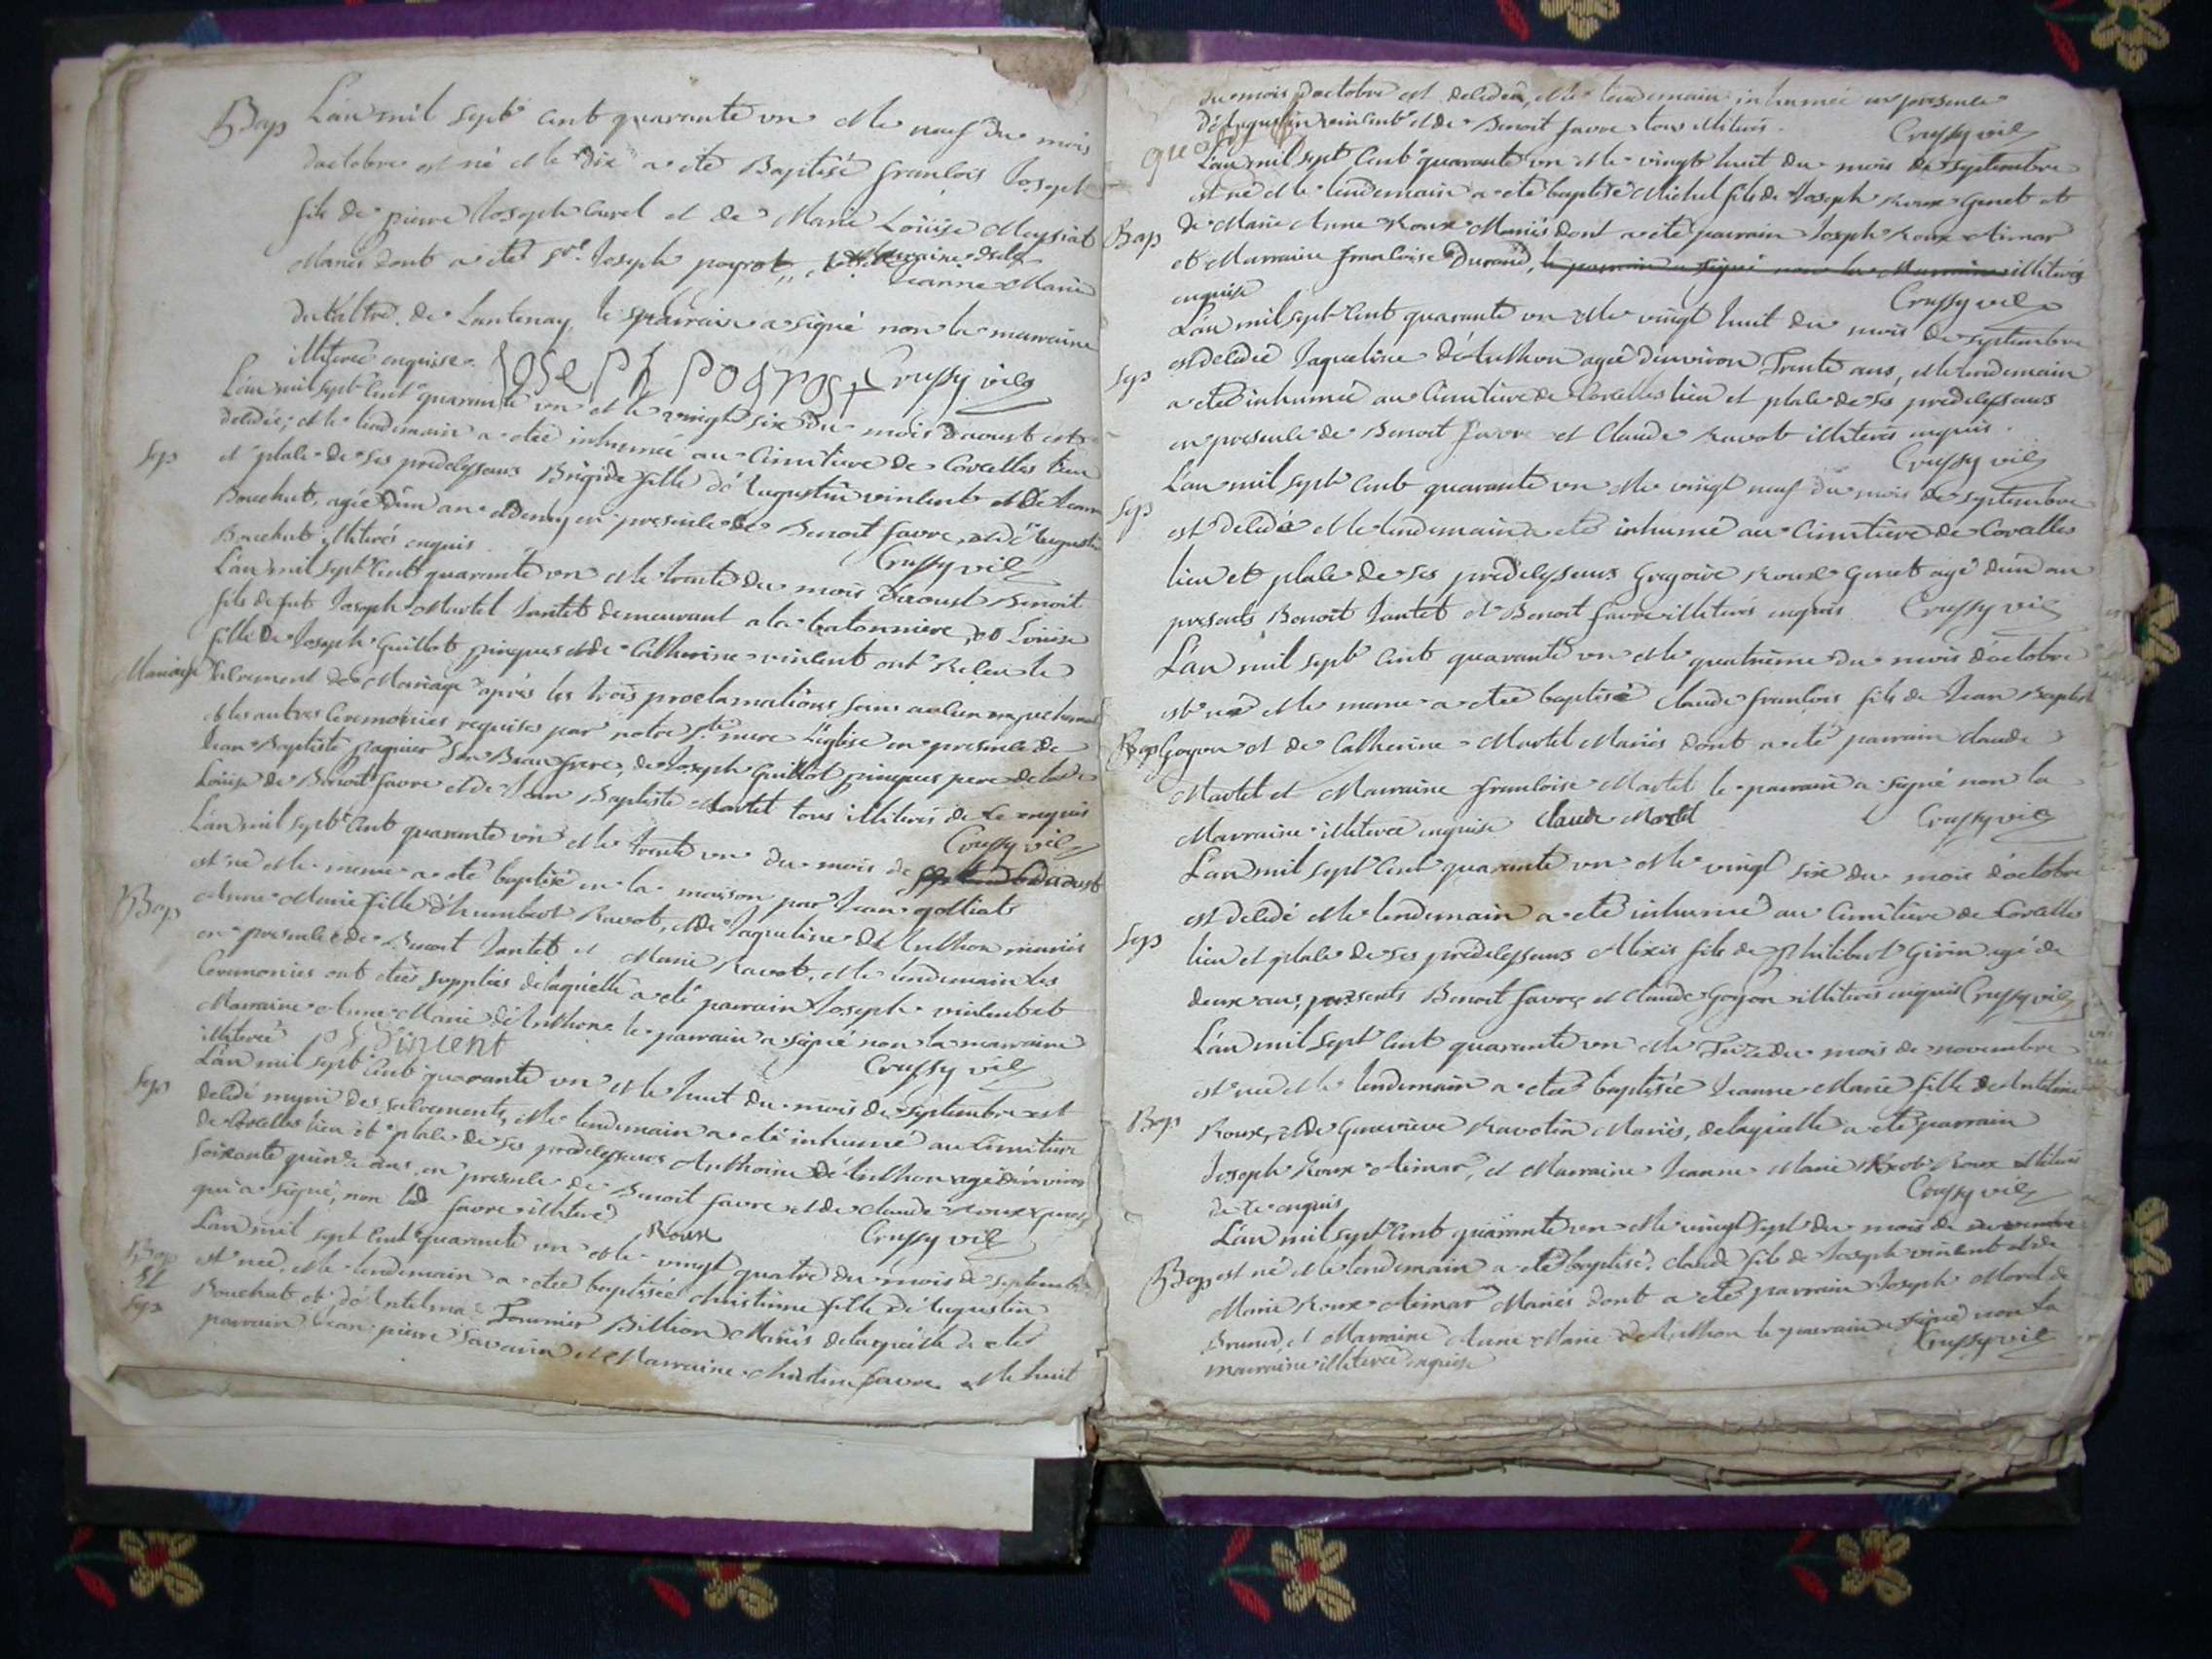 Bap L'an mil sept cent quarante un et le neuf du mois
d'octobre est né et le dix a eté Baptisé francois Joseph
fils de pierre Joseph Curel et de Marie Loüise Meysiat
Mariés dont a eté Joseph poyrot, Jeanne Marie
de Lantenay, le parrain a signé non la marraine
illiterée enquise. Joseph poyrot Croussy vic
L'an mil sept cent quarante un et le vingt six du mois d'aoust est
decedée; et le lendemain a eteé inhumée au Cimetiere de Corcelles lieu
Sep et place de ses predecesseurs Brigide fille d'Augustin vincent et de
Bouchut, agée d'un an et demy en presence de Benoit favre, et d'Augustin
Bouchut illiterés enquis Croussy vic
L'an mil sept cent quarante un et le trente du mois d'aoust Benoit
fils de fut Joseph Martel Jantet demeurant a la batonniere, et Loüise
fille de Joseph Guillot pingues et de Catherine vincent ont Receu le
Mariage Sacrement de Mariage après les trois proclamations sans aucun empechement
et les autres Ceremonies requises par notre Ste mere L'eglise en presence de
Jean Baptiste paquier son Beau frere, de Joseph Guillot pingues pere de lade
Loüise de Benoit favre et de Jean Baptiste Martel tous illiterés de ce enquis
Croussy vic
L'an mil sept cent quarante un et le trente un du mois de d'aoust
est né et le meme a eté baptisé en la maison par Jean golliat
Bap Anne Marie fille d'humbert Ravot, et de Jaqueline D'Anthon mariés
en presence de Benoit Jantet et Marie Ravot, et le lendemain les
Ceremonies ont eteé suppléés de laquelle a eté parrain Joseph vincent et
Marraine Anne Marie D'Anthon le parrain a signé non la marraine
illiterée vincent Croussy vic
L'an mil sept cent quarante un et le huit du mois de septembre est
Sep decedé muni des sacrements, et le lendemain a eté inhumé au Cimetiere
de Corcelles lieu et place de ses predecesseurs Anthoine D'Anthon agé d'environ
soixante quinze ans en presence de Benoit favre et de Claude Roux
qui a signé, non led favre illiteré Roux Croussy vic
L'an mil sept cent quarante un et le vingt quatre du mois de septembre
Bap est née, et le lendemain a eteé baptisée christinne fille d'Augustin
Et Bouchut et d'Antelma Fournier Billion Mariés de laquelle a eté
Sep parrain Jean pierre Savarin et Marraine christine favre et le huit
du mois d'octobre est decedeé, et le lendemain inhumée en presence
d'Augustin vincent et de Benoit favre tous illiterés. Croussy vic
L'an mil sept cent quarante un et le vingt huit du mois de septembre
est né et le lendemain a eté baptisé Michel fils de Joseph Roux Genet et
Bap de Marie Anne Roux Mariés dont a eté parrain Joseph Roux Aimar
et Marraine francoise Durand, le parrain a signé non la Marraine illiterés
enquise Croussy vic
L'an mil sept cent quarante un et le vingt huit du mois de septembre
Sep est decedée Jaqueline D'Anthon agée d'environ Trente ans, et le lendemain
a eteé inhumée au Cimetiere de Corcelles lieu et place de ses predecesseurs
en presence de Benoit favre et Claude Ravot illiterés enquis.
Croussy vic
L'an mil sept cent quarante un et le vingt neuf du mois de septembre
Sep est decedé et le lendemain a eté inhumé au Cimetiere de Corcelles
lieu et place de ses predecesseurs Gregoire Roux Genet agé d'un an
presents Benoit Jantet et Benoit favre illiterés enquis Croussy vic
L'an mil sept cent quarante un et le quatrieme du mois d'octobre
est né et le meme a eteé baptisé Claude francois fils de Jean Baptiste
Bap Goyon et de Catherine Martel Mariés dont a eté parrain claude
Martel et Marraine francoise Martel le parrain a signé non la
Marraine illiterée enquise claude Martel Croussy vic
L'an mil sept cent quarante un et le vingt six du mois d'octobre
est decedé et le lendemain a eté inhumé au Cimetiere de Corcelles
Sep lieu et place de ses predecesseurs Alexis fils de Philibert Girin agé de
deux ans, presents Benoit favre et Claude Goyon illiterés enquis Croussy vic
L'an mil sept cent quarante un et le Treize du mois de novembre
est neé et le lendemain a eteé baptisée Jeanne Marie fille de Antelme
Bap Roux, et de Genevieve Ravotin Mariés, de laquelle a eté parrain
Joseph Roux Aimar, et Marraine Jeanne Marie Roux illiterés
de ce enquis Croussy vic
L'an mil sept cent quarante un et le vingt sept du mois de novembre
Bap est né et le lendemain a eté baptisé claude fils de Joseph vincent et de
Marie Roux Aimar Mariés dont a eté parrain Joseph Morel de
Brunod, et Marraine Anne Marie D'Anthon le parrain a signé non la
marraine illiterée enquise Croussy vic